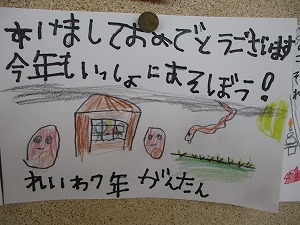 あけましておめでとうございます
今年もいっしょにあそぼう!
れいわ7年 がんたん